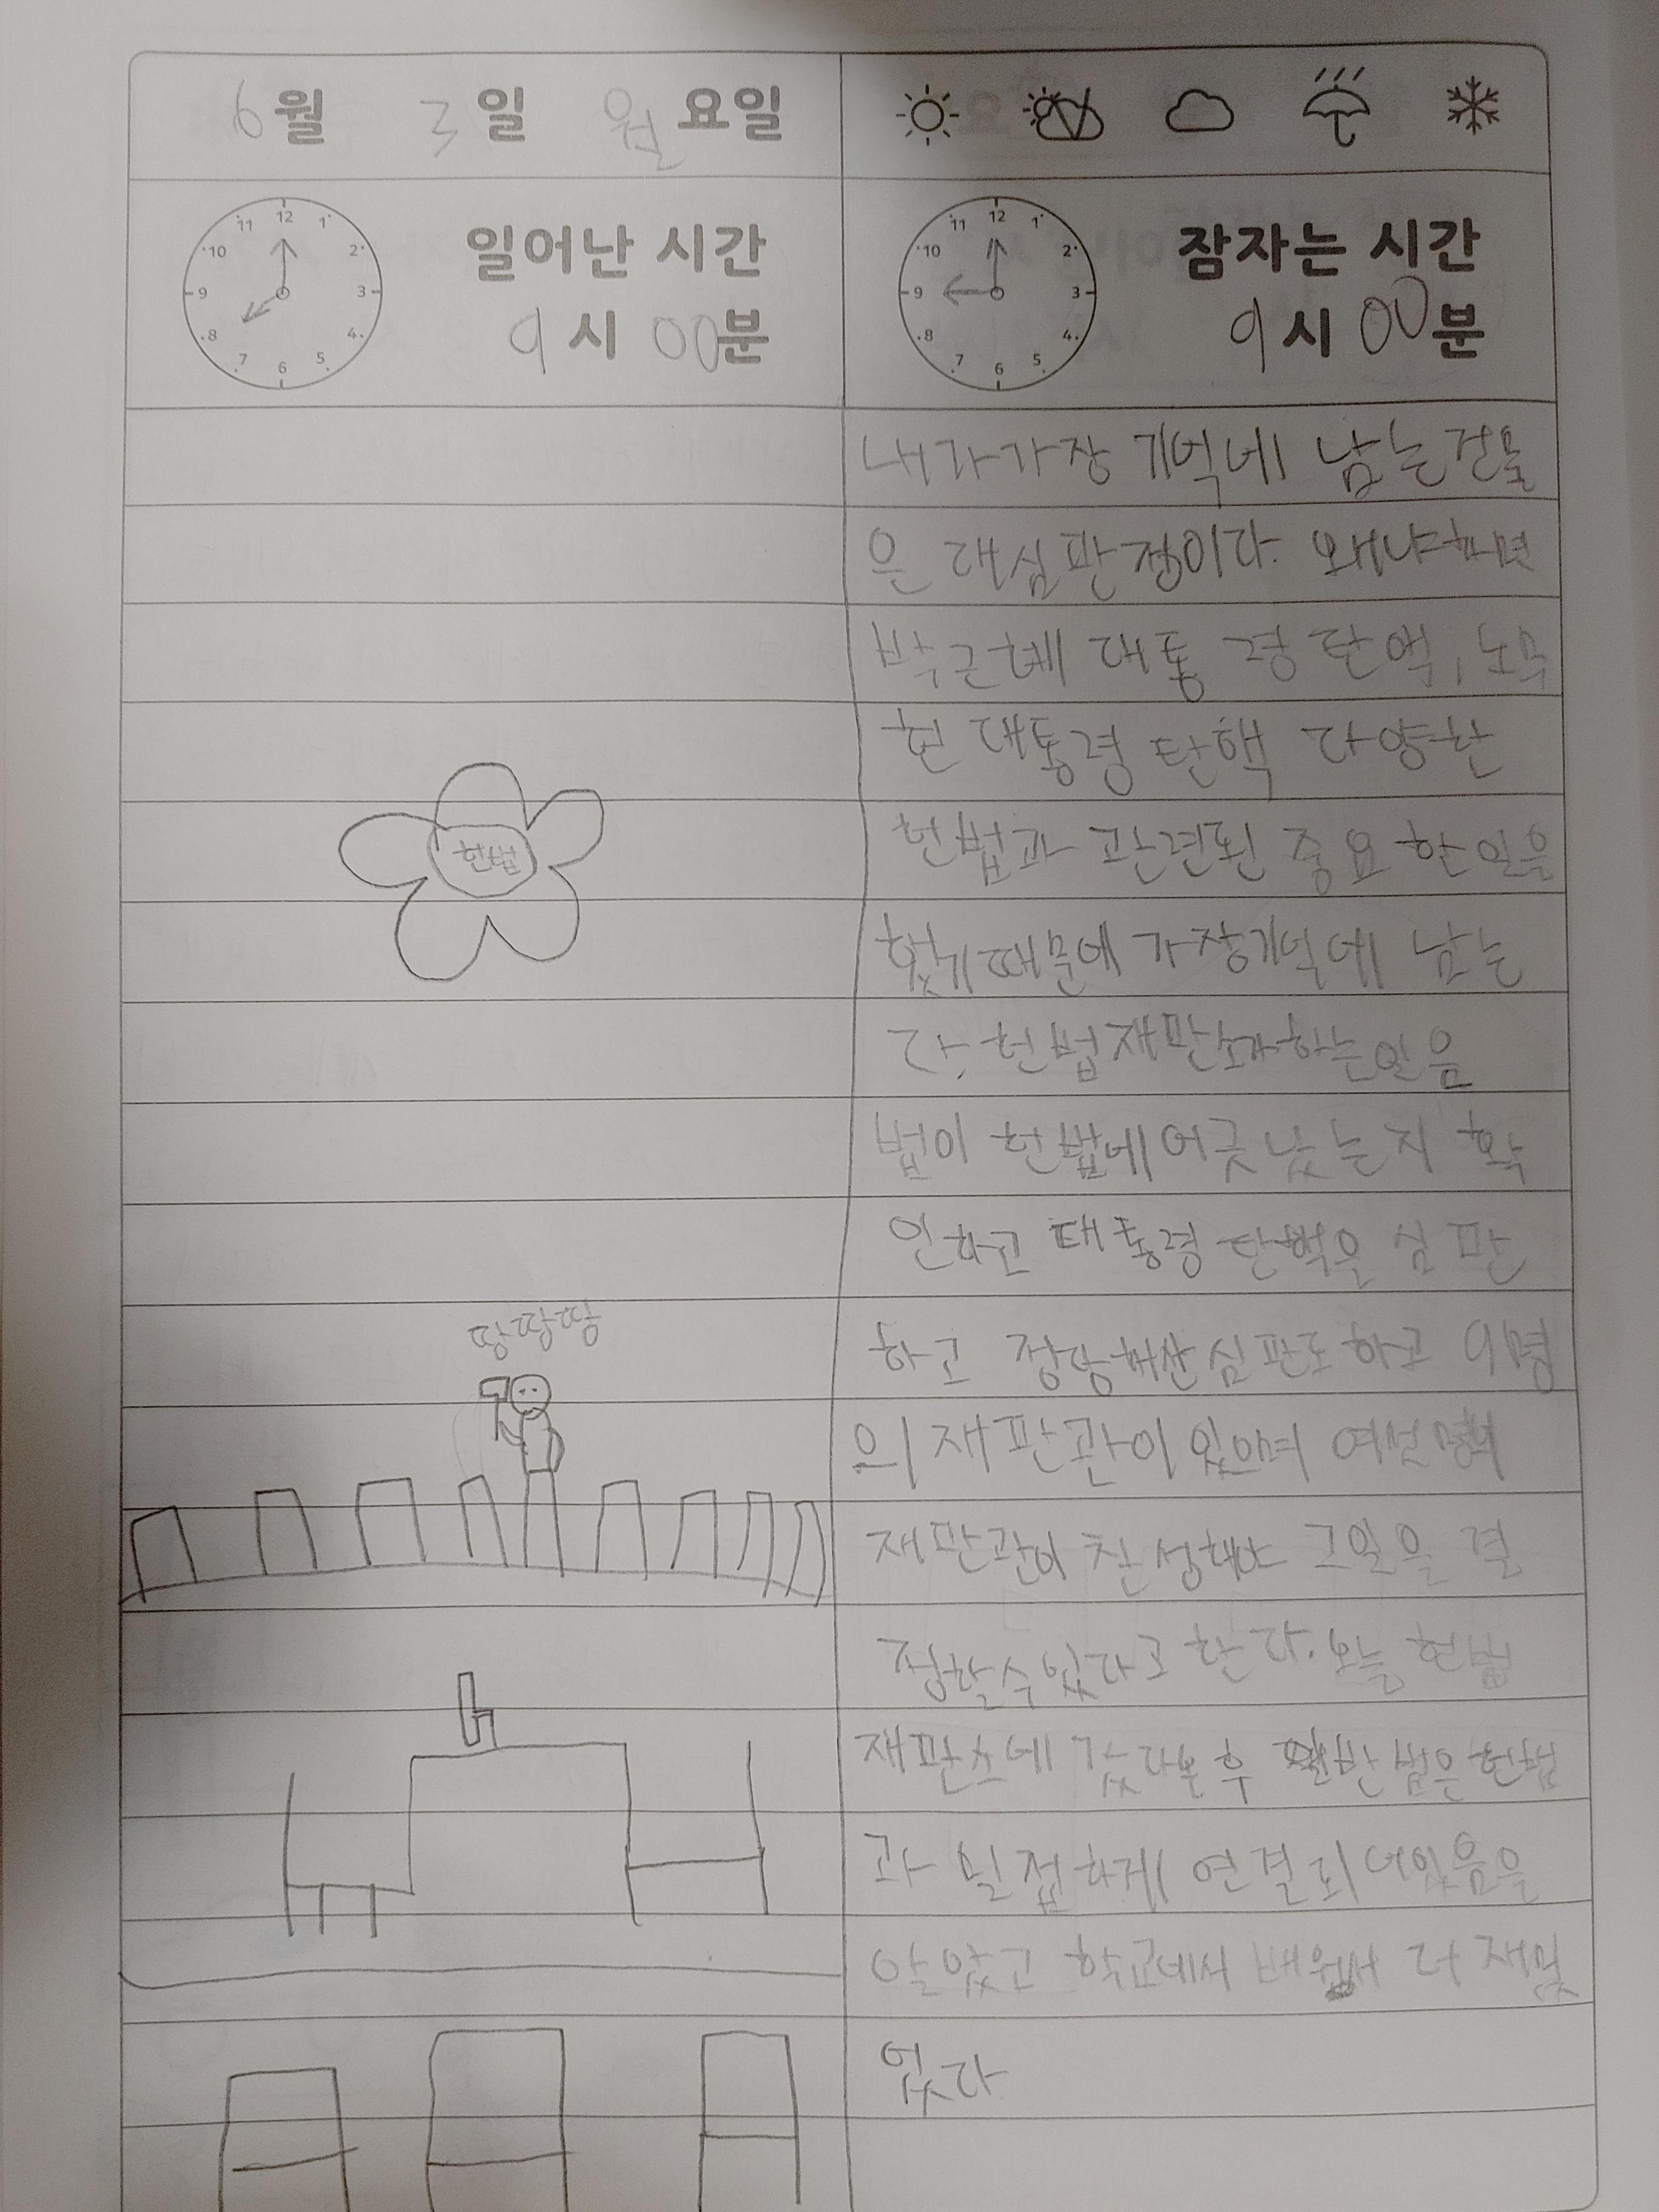 6월 3일 월요일
일어난 시간
9시 00분
잠자는 시간
9시 00분
11 12 1
10 2
9 3
8 4
7 6 5
11 12 1
10 2
9 3
8 4
7 6 5
내가가장 기억에 남는건물
은 대심판정이다. 왜냐하면
박근헤 대통령 탄핵, 노무
현 대통령 탄핵 다양한
헌법과 관련된 중요한일을
헌법
했귀때문에 가장기억에 남는
다. 헌법재판소가하는일음
법이 헌법에어긋났는지 확
인하고 대통령탄핵을 심판
하고 정당해산심판도하고 9명
땅땅땅
의재판관이 있으며 여섯명의
재판관이 찬성해야 그일을 결
정할수있다고 한다. 오늘 헌법
재판소에 갔다온후 일반법은헌법
과 밀접하게 연결되어있음을
알았고 학교에서 배워서 더 재밌
었다